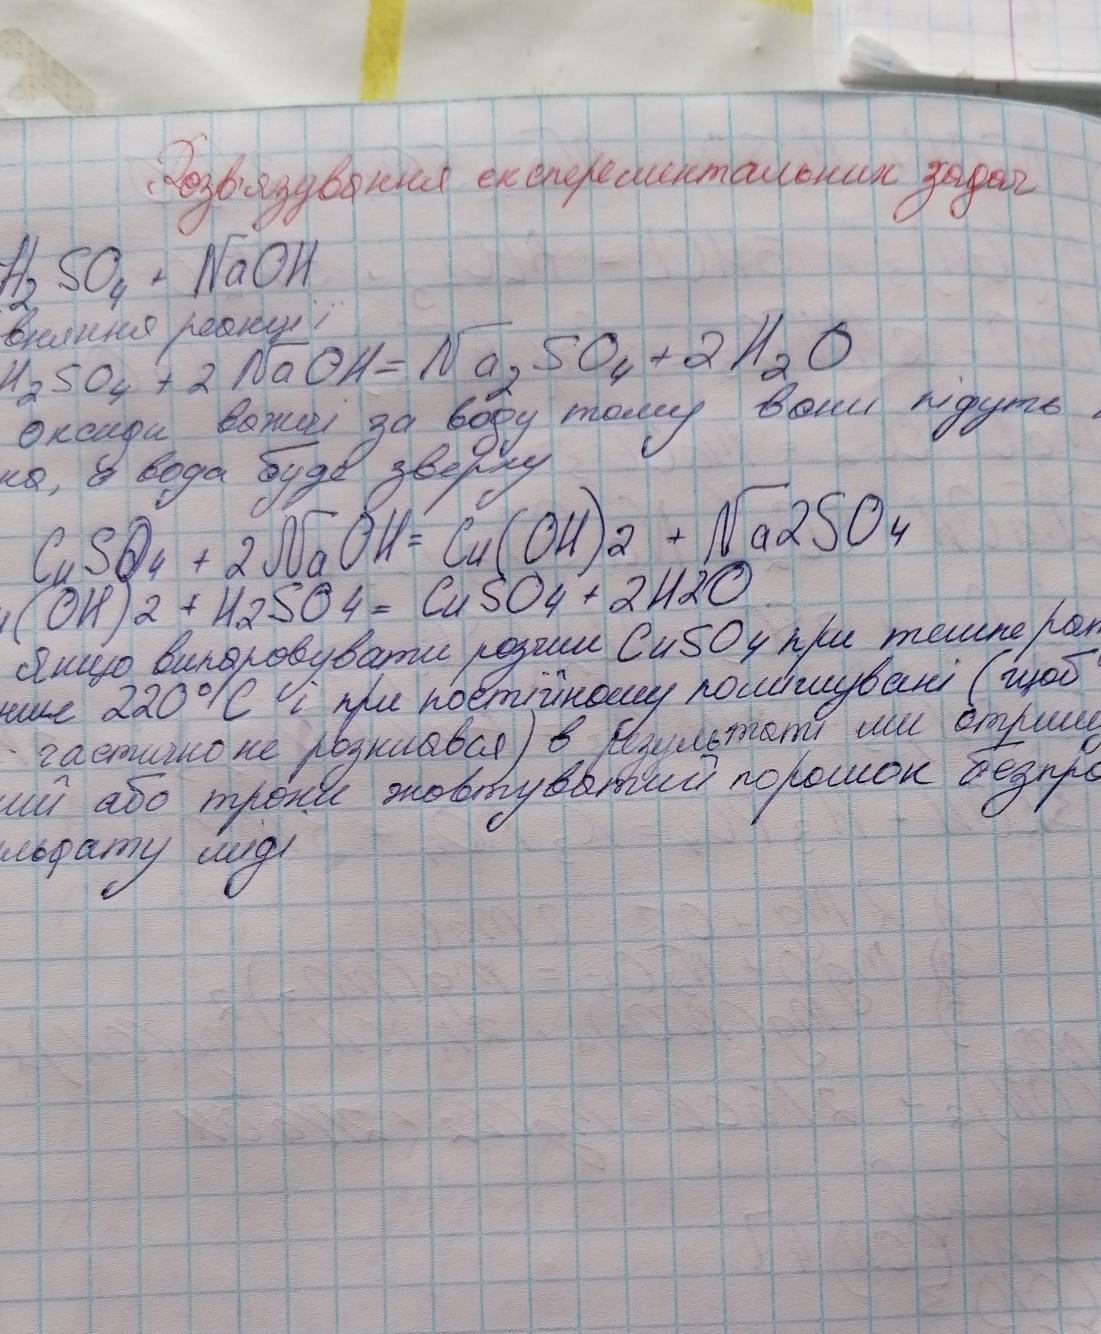 Розв'язування експерементальних задач
H2SO4 + NaOH
вняння реакції
H2SO4 + 2NaOH = Na2SO4 + 2H2O
оксиди важчі за воду тому вони підуть
на, а вода буде зверху
CuSO4 + 2NaOH = Cu(OH)2 + Na2SO4
(OH)2 + H2SO4 = CuSO4 + 2H2O
Якщо випаровувати розчин CuSO4 при температ
нижче 220°C і при постійному помішувані (щоб
частично не розклався) в результаті ми отриму
ий або трохи жовтуватий порошок безпро
льфату міді